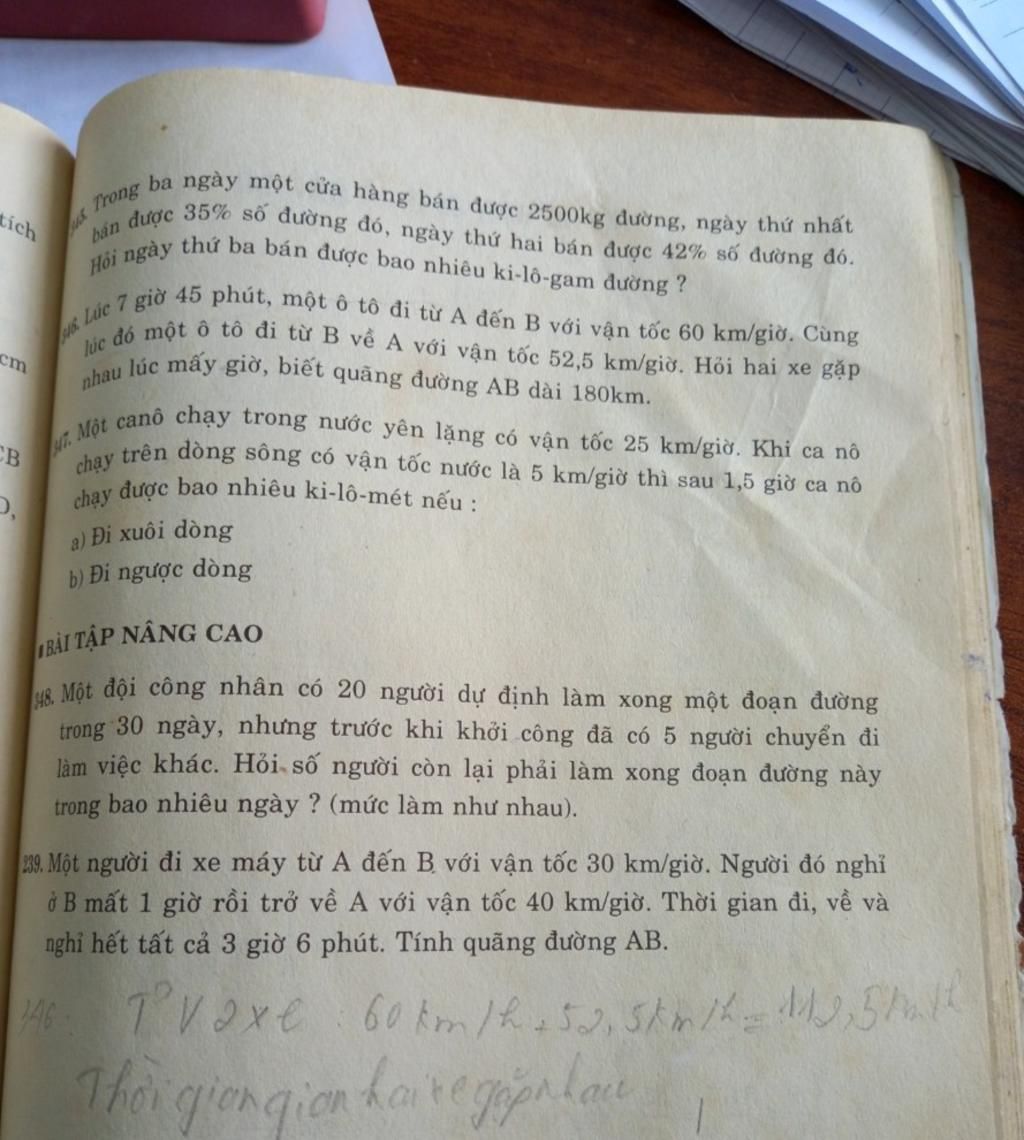 tích
cm
CB
O,
345. Trong ba ngày một cửa hàng bán được 2500kg đường, ngày thứ nhất
bán được 35% số đường đó, ngày thứ hai bán được 42% số đường đó.
Hỏi ngày thứ ba bán được bao nhiêu ki-lô-gam đường ?
346. Lúc 7 giờ 45 phút, một ô tô đi từ A đến B với vận tốc 60 km/giờ. Cùng
lúc đó một ô tô đi từ B về A với vận tốc 52,5 km/giờ. Hỏi hai xe gặp
nhau lúc mấy giờ, biết quãng đường AB dài 180km.
347. Một canô chạy trong nước yên lặng có vận tốc 25 km/giờ. Khi ca nô
chạy trên dòng sông có vận tốc nước là 5 km/giờ thì sau 1,5 giờ ca nô
chạy được bao nhiêu ki-lô-mét nếu :
a) Đi xuôi dòng
b) Đi ngược dòng
BÀI TẬP NÂNG CAO
348. Một đội công nhân có 20 người dự định làm xong một đoạn đường
trong 30 ngày, nhưng trước khi khởi công đã có 5 người chuyển đi
làm việc khác. Hỏi số người còn lại phải làm xong đoạn đường này
trong bao nhiêu ngày ? (mức làm như nhau).
239. Một người đi xe máy từ A đến B với vận tốc 30 km/giờ. Người đó nghỉ
ở B mất 1 giờ rồi trở về A với vận tốc 40 km/giờ. Thời gian đi, về và
nghỉ hết tất cả 3 giờ 6 phút. Tính quãng đường AB.
346. T° V 2 xe : 60 km/h + 52,5km/h = 112,5km/h
Thời gian gian hai xe gặp nhau